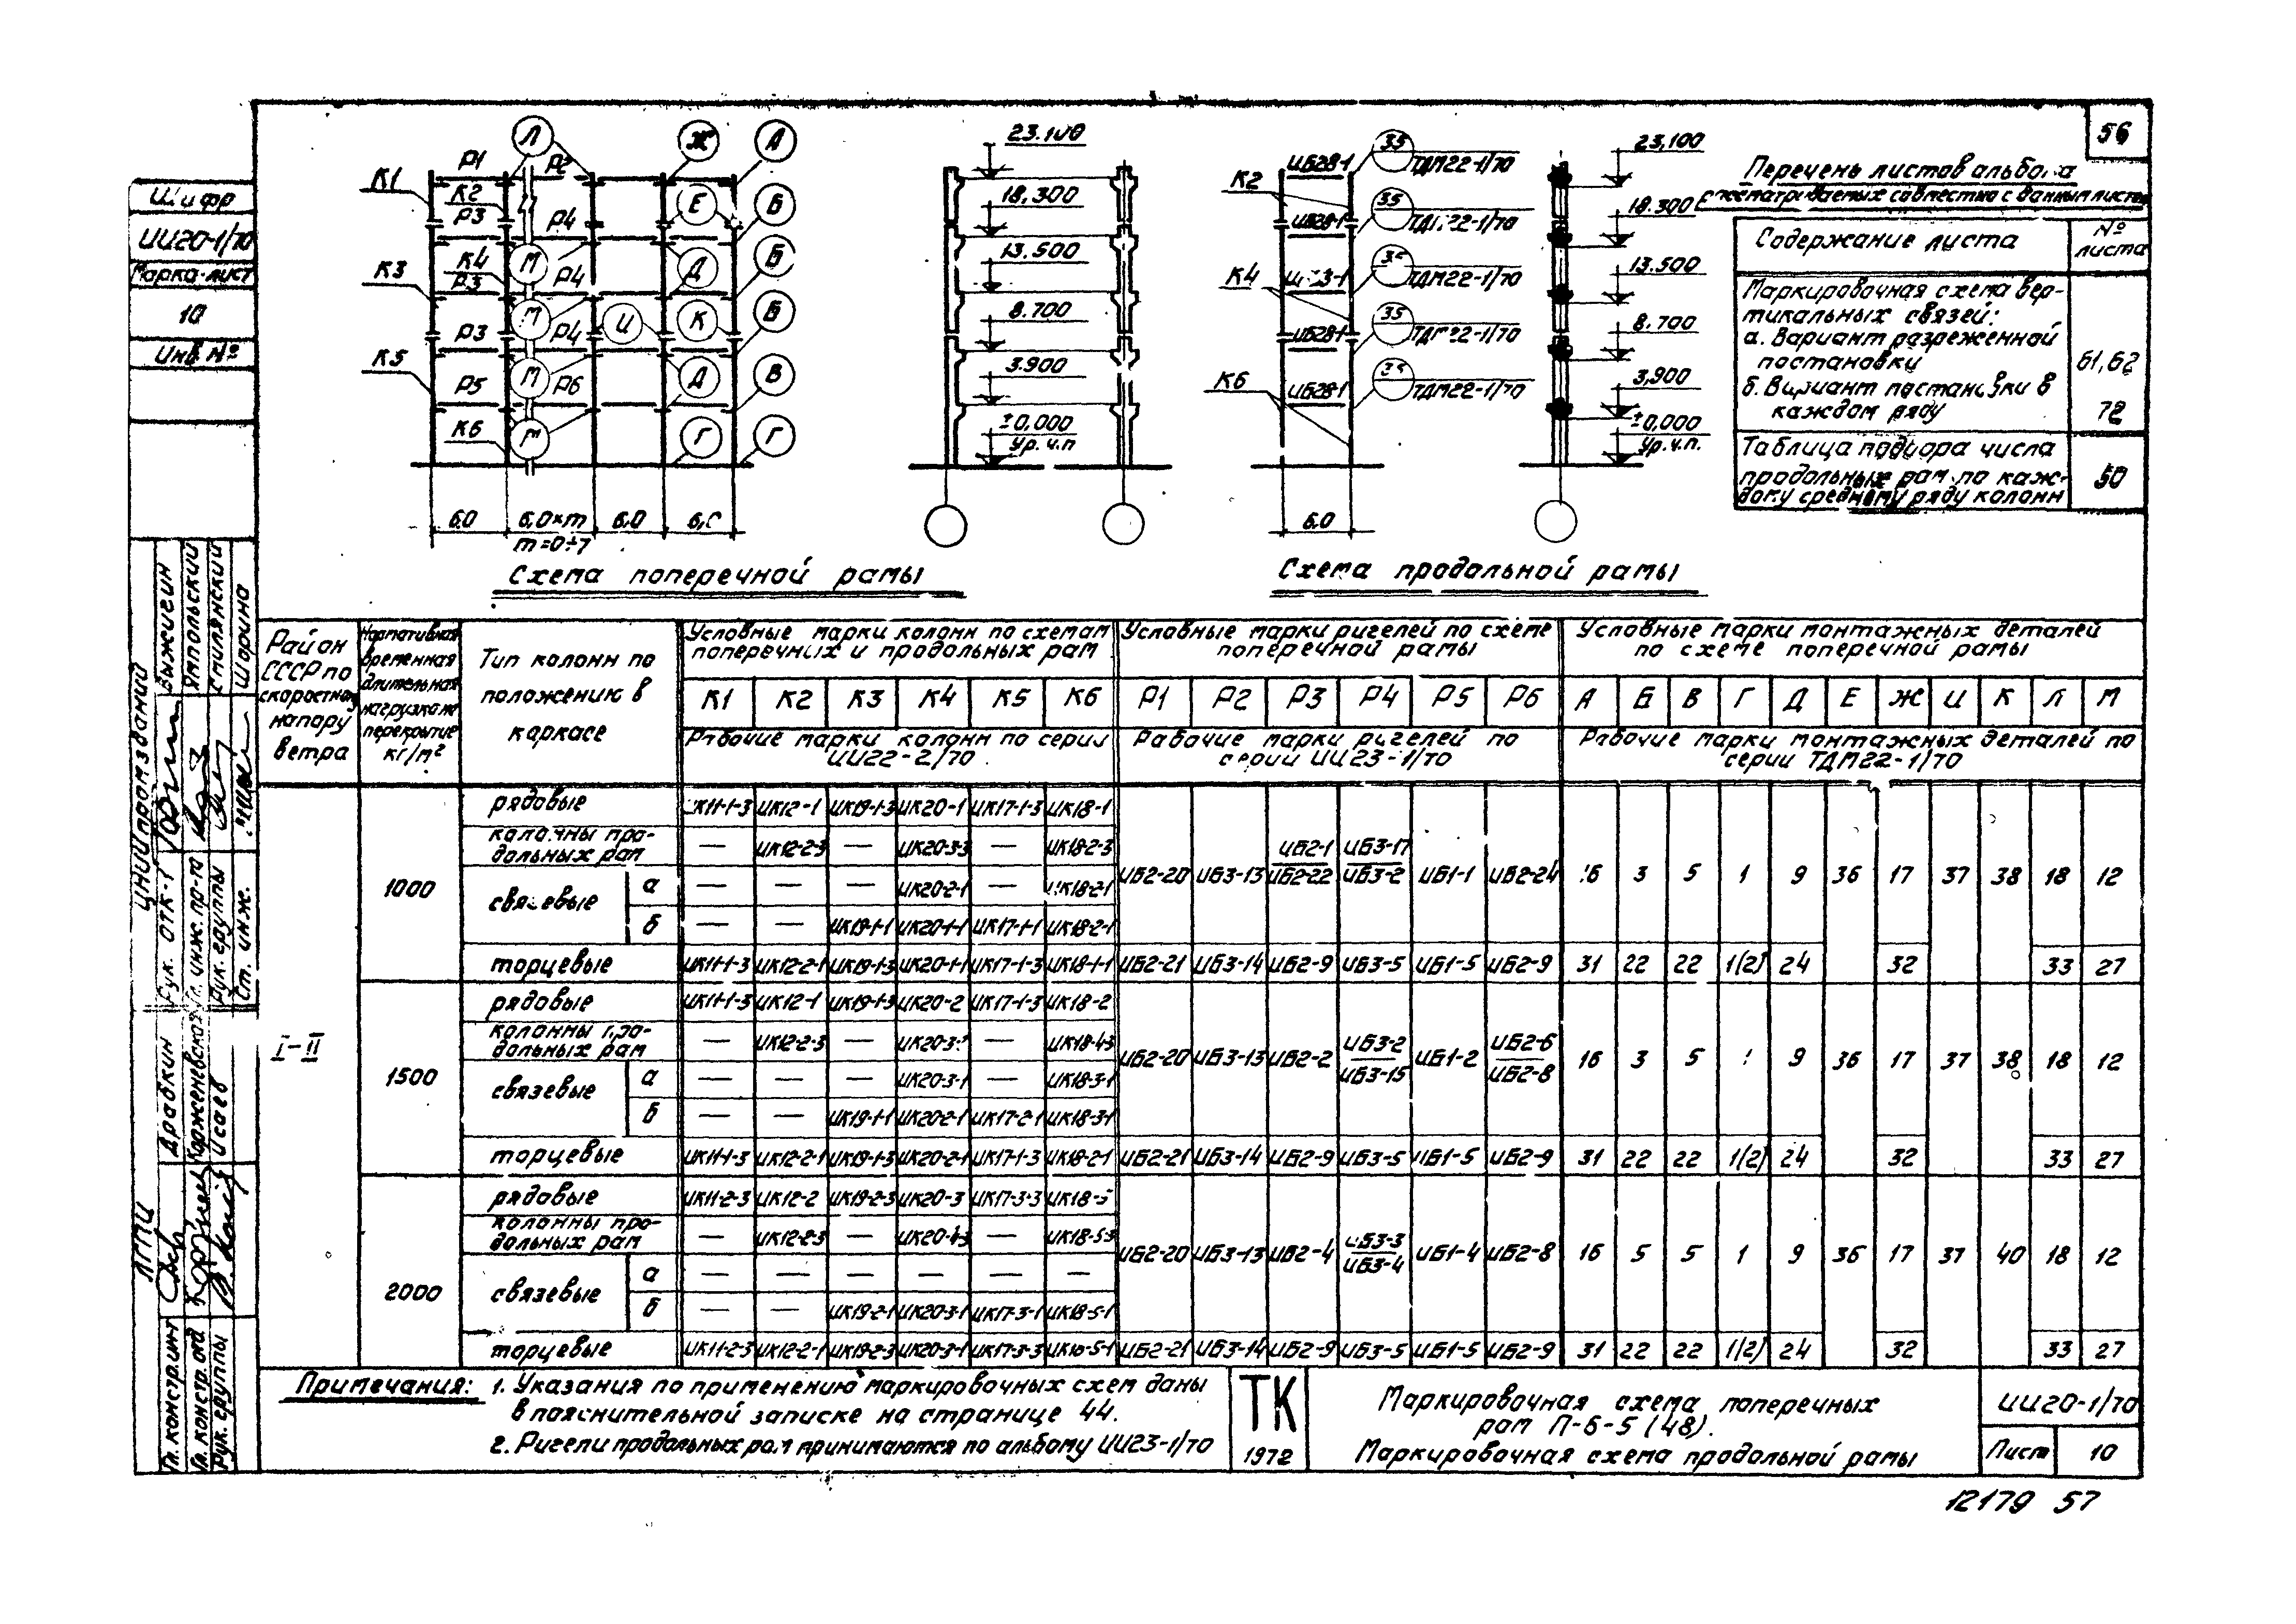 56
Шифр
ИИ20-1/70
Марка-лист
10
Инв №
К1
К3
К5
Р1
К2
Р3
Р2
Р4
К4
Р3
Р4
Р3
Р4
Р5
Р6
К6
Л
Ж
А
Е
Б
М
Д
Б
М
И
К
Б
М
Д
В
М
Г
Г
6.0
6.0×m
6.0
m=0÷7
Схема поперечной рамы
23.100
18.300
13.500
8.700
3.900
±0,000
Ур. ч.п
К2
К4
К6
ИБ28-1
ИБ28-1
ИБ28-1
ИБ28-1
35
ТДМ22-1/70
35
ТДМ22-1/70
ТДМ22-1/70
35
ТДМ22-1/70
ТДМ22-1/70
6.0
23,100
18.300
13.500
8.700
3,900
±0,000
Ур.ч.п.
Схема продольной рамы
Перечень листов альбома
рассматриваемых совместно с данным листом
Содержание листа
№ листа
Маркировочная схема вер-
тикальных связей:
а. Вариант разреженной
постановки
61,62
б. Вариант постановки в
каждом ряду
72
Таблица подбора числа
продольных рам по каж-
дому среднему ряду колонн
50
Район СССР по скоростному напору ветра
Нормативная временная длительная нагрузка на перекрытие кг/м²
Тип колонн по положению в каркасе
Условные марки колонн по схемам поперечных и продольных рам
Условные марки ригелей по схеме поперечной рамы
Условные марки монтажных деталей по схеме поперечной рамы
К1 К2 К3 К4 К5 К6 Р1 Р2 Р3 Р4 Р5 Р6 А Б В Г Д Е Ж И К Л М
Рабочие марки колонн по серии ИИ22-2/70
Рабочие марки ригелей по серии ИИ23-1/70
Рабочие марки монтажных деталей по серии ТДМ22-1/70
I-II
1000
рядовые ИК12-1 ИК19-1-3 ИК20-1 ИК17-1-3 ИК18-1
колонны про-
дольных рам — ИК12-2-3 — ИК20-3-3 — ИК18-2-3
связевые
а — — — ИК20-2-1 — ИК18-2-1
б — — ИК19-1-1 ИК20-1-1 ИК17-1-1 ИК18-2-1
ИБ2-20 ИБ3-13 ИБ2-1 / ИБ2-22 ИБ3-17 / ИБ3-2 ИБ1-1 ИБ2-24 3 5 1 9 36 17 37 38 18 12
торцевые ИК11-1-3 ИК12-2-1 ИК19-1-3 ИК20-1-1 ИК17-1-3 ИК18-1-1 ИБ2-21 ИБ3-14 ИБ2-9 ИБ3-5 ИБ1-5 ИБ2-9 31 22 22 1(2) 24 32 33 27
1500
рядовые ИК11-1-3 ИК12-1 ИК19-1-3 ИК20-2 ИК17-1-3 ИК18-2
колонны про-
дольных рам — ИК12-2-3 — — ИК18-4-3
связевые
а — — — ИК20-3-1 — ИК18-3-1
б — — ИК19-1-1 ИК20-2-1 ИК17-2-1 ИК18-3-1
ИБ2-20 ИБ3-13 ИБ2-2 ИБ3-2 / ИБ3-15 ИБ1-2 ИБ2-6 / ИБ2-8 16 3 5 9 36 17 37 38 18 12
торцевые ИК11-1-3 ИК12-2-1 ИК19-1-3 ИК20-2-1 ИК17-1-3 ИК18-2-1 ИБ2-21 ИБ3-14 ИБ2-9 ИБ3-5 ИБ1-5 ИБ2-9 31 22 22 1(2) 24 32 33 27
2000
рядовые ИК11-2-3 ИК12-2 ИК19-2-3 ИК20-3 ИК17-3-3 ИК18-5
колонны про-
дольных рам — ИК12-2-3 — ИК20-4-3 — ИК18-5-3
связевые
а — — — — — —
б — — ИК19-2-1 ИК20-3-1 ИК17-3-1 ИК18-5-1
ИБ2-20 ИБ3-13 ИБ2-4 ИБ3-3 / ИБ3-4 ИБ1-4 ИБ2-8 16 5 5 1 9 36 17 37 40 18 12
торцевые ИК11-2-3 ИК12-2-1 ИК19-2-3 ИК20-3-1 ИК17-3-3 ИК18-5-1 ИБ2-21 ИБ3-14 ИБ2-9 ИБ3-5 ИБ1-5 ИБ2-9 31 22 22 1(2) 24 32 33 27
Примечания: 1. Указания по применению маркировочных схем даны
в пояснительной записке на странице 44.
2. Ригели продольных рам принимаются по альбому ИИ23-1/70
ТК
1972
Маркировочная схема поперечных
рам П-6-5 (48).
Маркировочная схема продольной рамы
ИИ20-1/70
Лист 10
12179 57
ЦНИИпромзданий
Рук. ОТК-1 Выжигин
Гл. инж. пр-та Ямпольский
Рук. группы Смилянский
Ст. инж. Шорина
Гл. констр. ин-т Драбкин
Гл. констр. отд Корженевская
Рук. группы Исаев